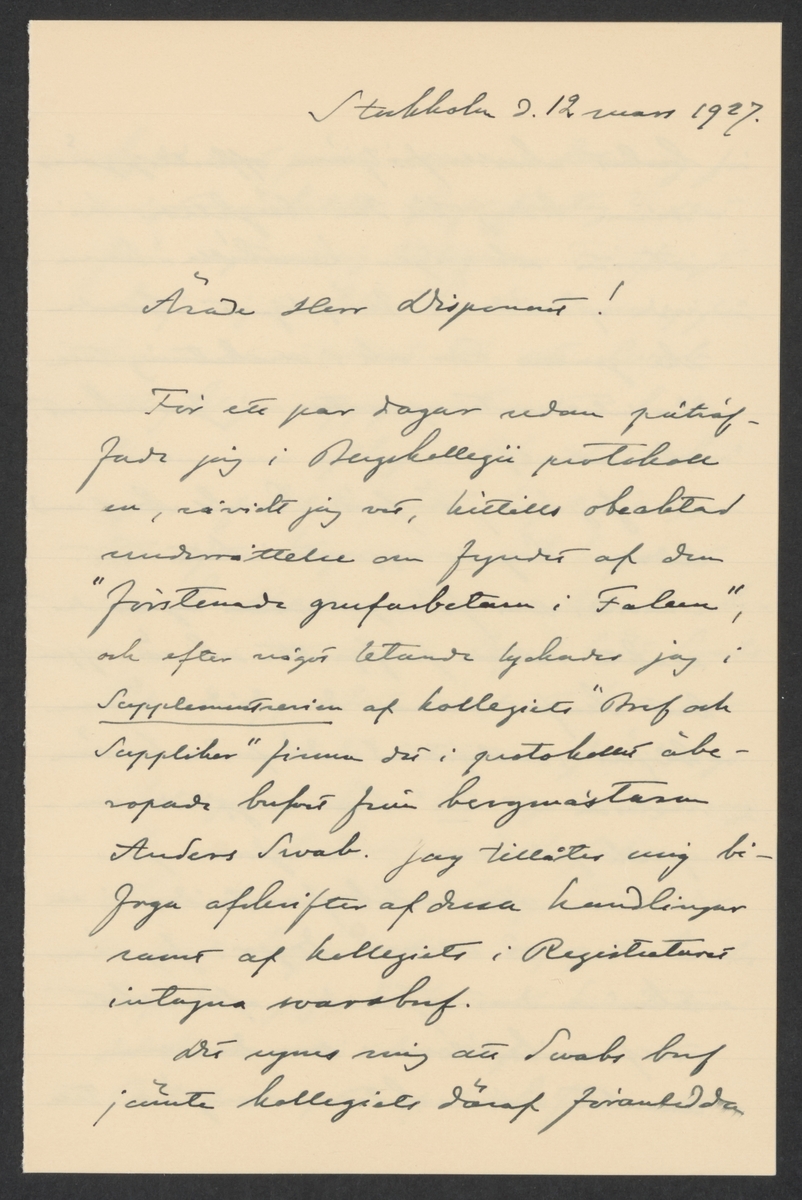 Stockholm d. 12 mars 1927.
Ärade Herr Disponent!
För ett par dagar sedan påträf-
fade jag i Bergskollegii protokoll
en, såvidt jag vet, hittills obeaktad
underrättelse om fyndet af den
"förstenade grufarbetaren i Falun",
och efter något letande lyckades jag i
Supplementserien af kollegiets "Bref och
Suppliker" finna det i protokollet åbe-
ropade brefvet från bergmästaren
Anders Swab. Jag tillåter mig bi-
foga afskrifter af dessa handlingar
samt af kollegiets i Registraturet
intagna svarsbref.
Det synes mig att Swabs bref
jämte kollegiets däraf föranledda